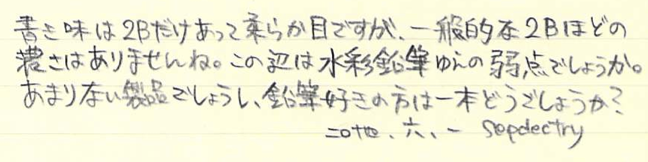 書き味は2Bだけあって柔らか目ですが、一般的な2Bほどの
濃さはありませんね。この辺は水彩鉛筆ゆえの弱点でしょうか。
あまりない製品でしょうし、鉛筆好きの方は一本どうでしょうか?
二〇十四、六、一 Sepdectry